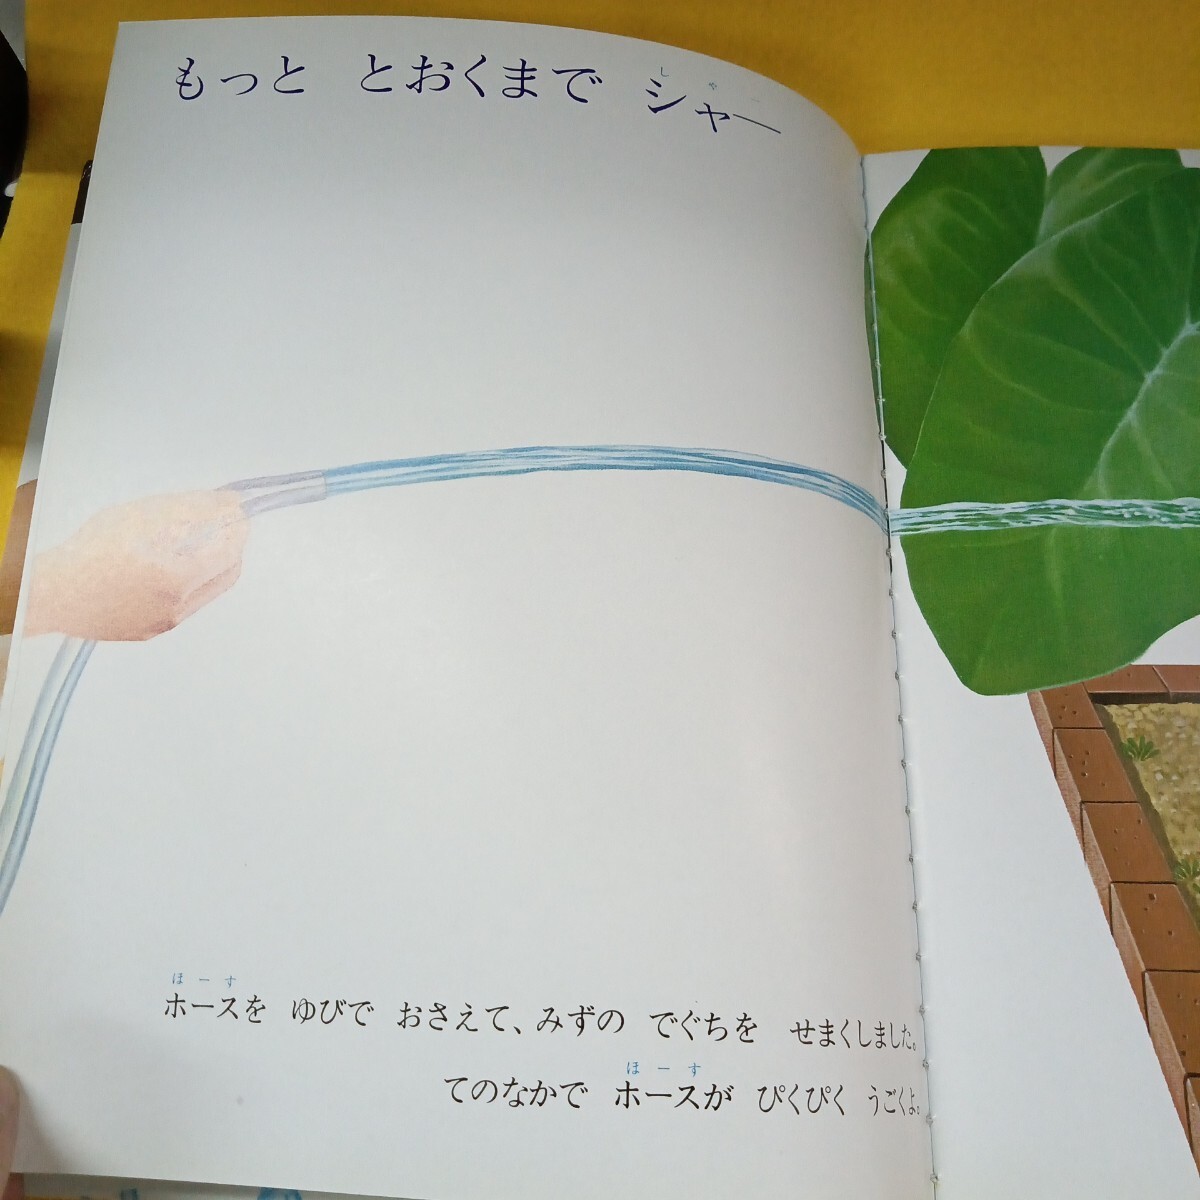 もっと とおくまで シャー
しゃー
ほーす
ホースを ゆびで おさえて、みずの でぐちを せまくしました。
ほーす
てのなかで ホースが ぴくぴく うごくよ。